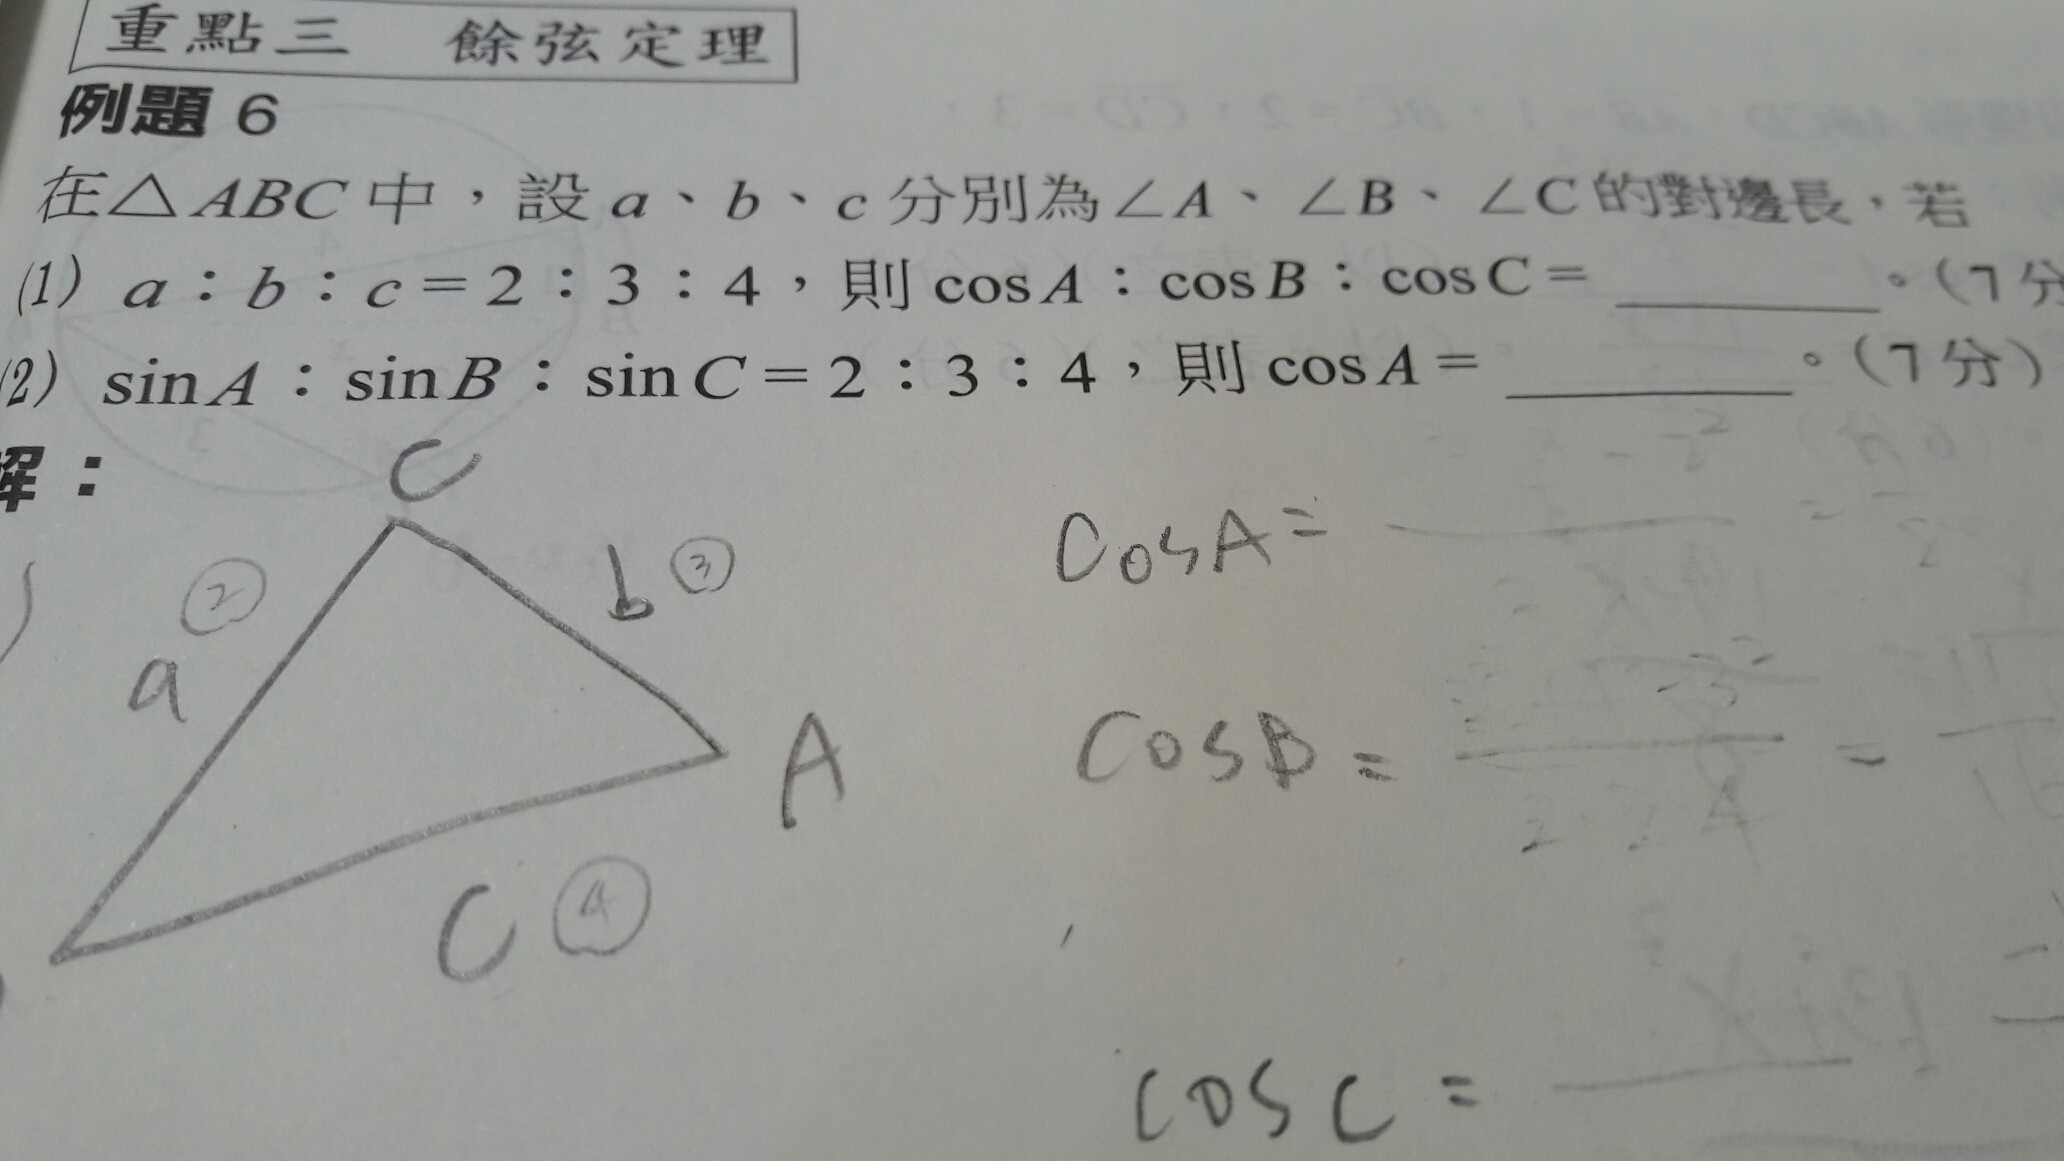 重點三 餘弦定理
例題 6
在△ABC 中，設 a、b、c 分別為∠A、∠B、∠C 的對邊長，若
(1) a：b：c＝2：3：4，則 cosA：cosB：cosC＝______。（7 分
(2) sinA：sinB：sinC＝2：3：4，則 cosA＝______。（7 分）
解：
C
a ②
b ③
A
C ④
cosA=
cosB=
cosC=